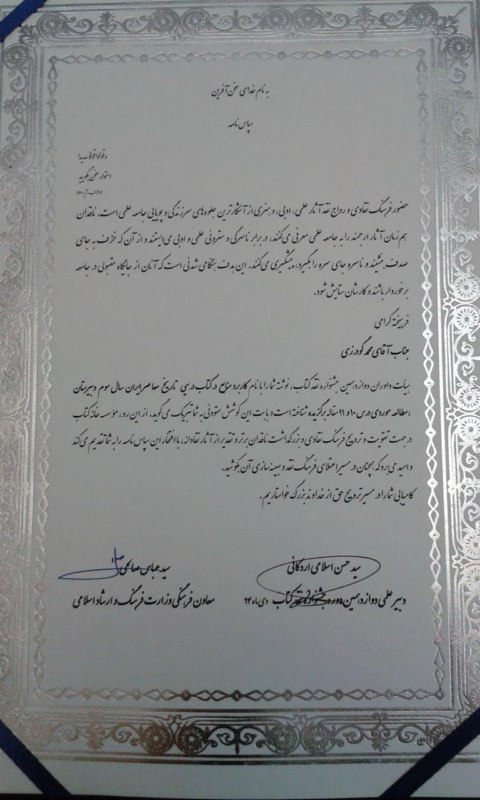 به نام خدای سخن آفرین
سپاس نامه
و قولوا قولا سدیدا
استوار سخن بگویید
حضور فرهنگ نقادی و رواج نقد آثار علمی، ادبی، و هنری از آشکارترین جلوه‌های سرزندگی و پویایی جامعه علمی است. ناقدان
هم زمان آثار ارجمند را به جامعه علمی معرفی می‌کنند، در برابر ناسرگی و سترونی علمی و ادبی می‌ایستند و از آن که خزف به جای
صدف بنشیند و ناسره جای سره را بگیرد، پیشگیری می‌کنند. این هدف هنگامی شدنی است که آنان از جایگاه مقبولی در جامعه
برخوردار باشند و کارشان ستایش شود.
فرهیخته گرامی
جناب آقای محمد گودرزی
هیات داوران دوازدهمین جشنواره نقد کتاب، نوشته شما را با نام کاربرد منابع در کتاب درسی تاریخ معاصر ایران سال سوم دبیرستان
،مطالعه موردی درس ۱۰ و ۱۱ مقاله برگزیده شناخته است و بابت این کوشش ستودنی به شما تبریک می‌گوید. از این رو، مؤسسه خانه کتاب
در جهت تقویت و ترویج فرهنگ نقادی و بزرگداشت ناقدان برتر و تقدیر از آثار نقادانه، با افتخار این سپاس نامه را به شما تقدیم می‌کند
و امید می‌برد که همچنان در مسیر اعتلای فرهنگ نقد و بهینه سازی آن بکوشید.
کامیابی شما را در مسیر ترویج حق از خداوند بزرگ خواستاریم.
سید حسن اسلامی اردکانی
دبیر علمی دوازدهمین دوره جشنواره نقد کتاب دی ماه ۹۴
سید عباس صالحی
معاون فرهنگی وزارت فرهنگ و ارشاد اسلامی